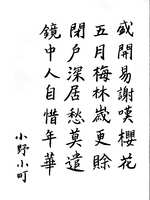 盛開易謝嘆櫻花
五月梅林歲更賒
閉戶深居愁莫遣
鏡中人自惜年華
小野小町